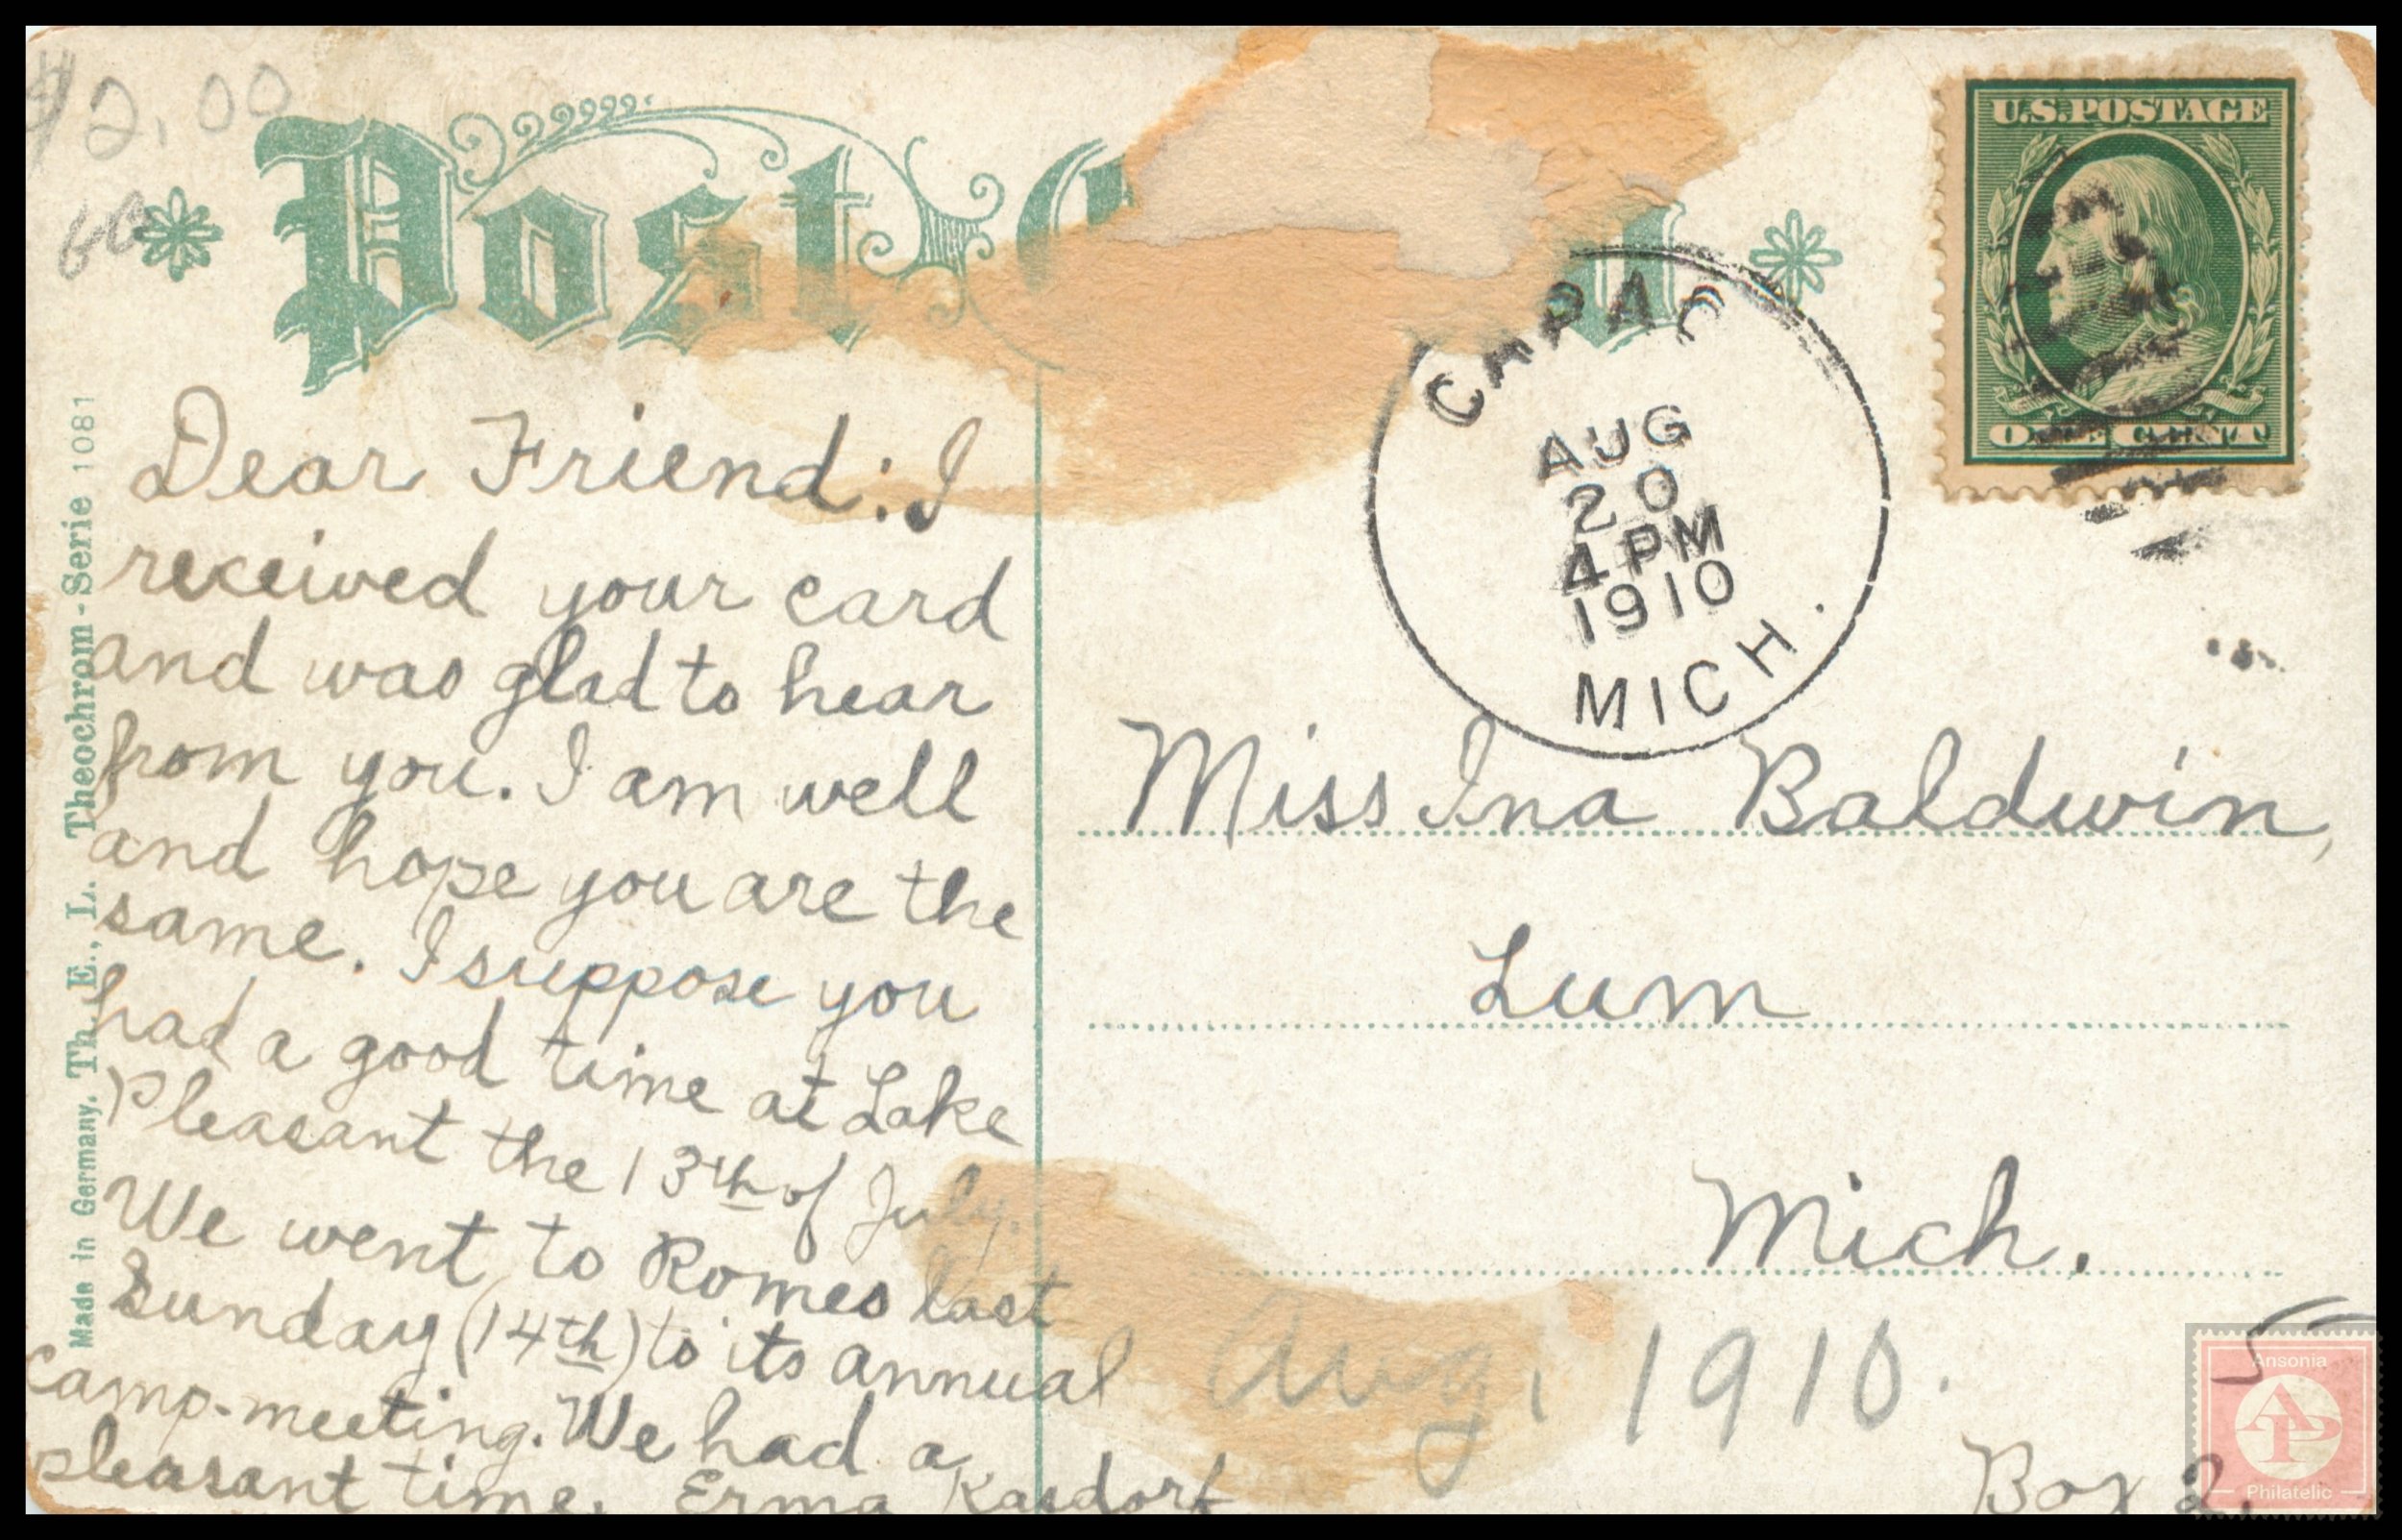 $2.00
Post C d
U.S. POSTAGE
ONE CENT
CAPAC
AUG
20
4 PM
1910
MICH.
Made in Germany. Th. E., L. Theochrom-Serie 1081
Dear Friend: I
received your card
and was glad to hear
from you. I am well
and hope you are the
same. I suppose you
had a good time at Lake
Pleasant the 13th of July.
We went to Romeo last
Sunday (14th) to its annual
camp-meeting. We had a
pleasant time. Erma Kasdorf
Miss Ina Baldwin,
Lum
Mich.
Aug, 1910.
Box 2.
Ansonia
AP
Philatelic